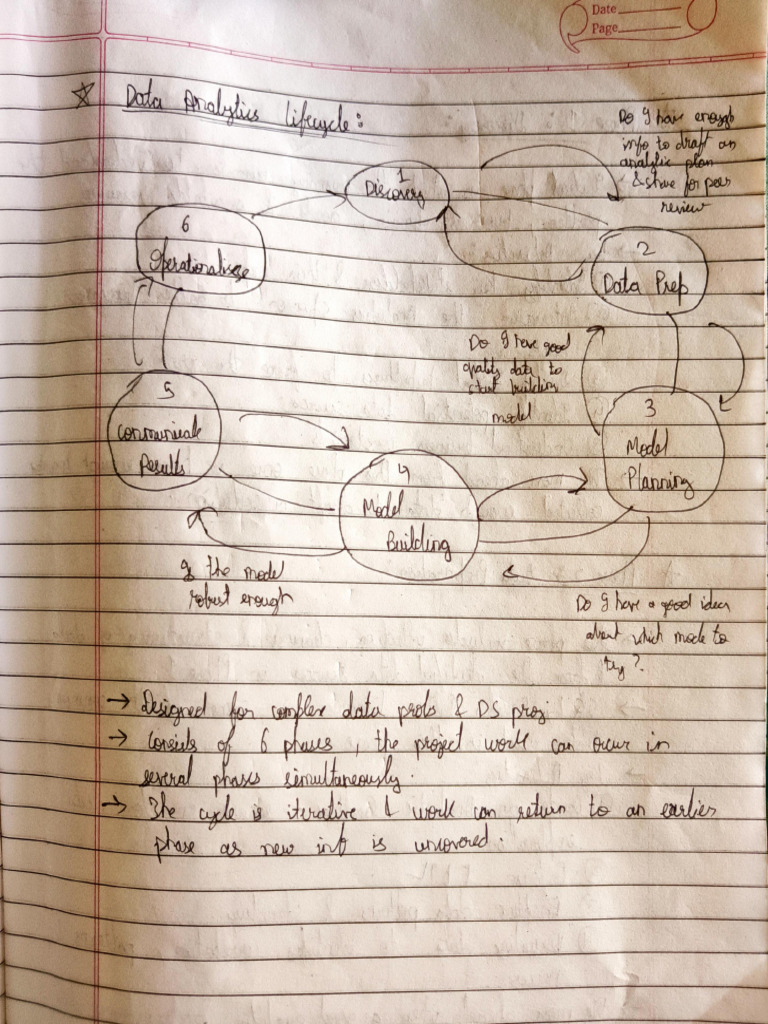 Date
Page
☆ Data Analytics Lifecycle:
Do I have enough
info to draft an
analytic plan
& share for peer
review
1
Discovery
6
Operationalise
2
Data Prep
Do I have good
quality data to
start building
model
5
communicate
Results
3
Model
Planning
4
Model
Building
Is the model
robust enough
Do I have a good idea
about which mode to
try?
→ Designed for complex data probs & DS proj
→ Consists of 6 phases, the project work can occur in
several phases simultaneously.
→ The cycle is iterative & work can return to an earlier
phase as new info is uncovered.